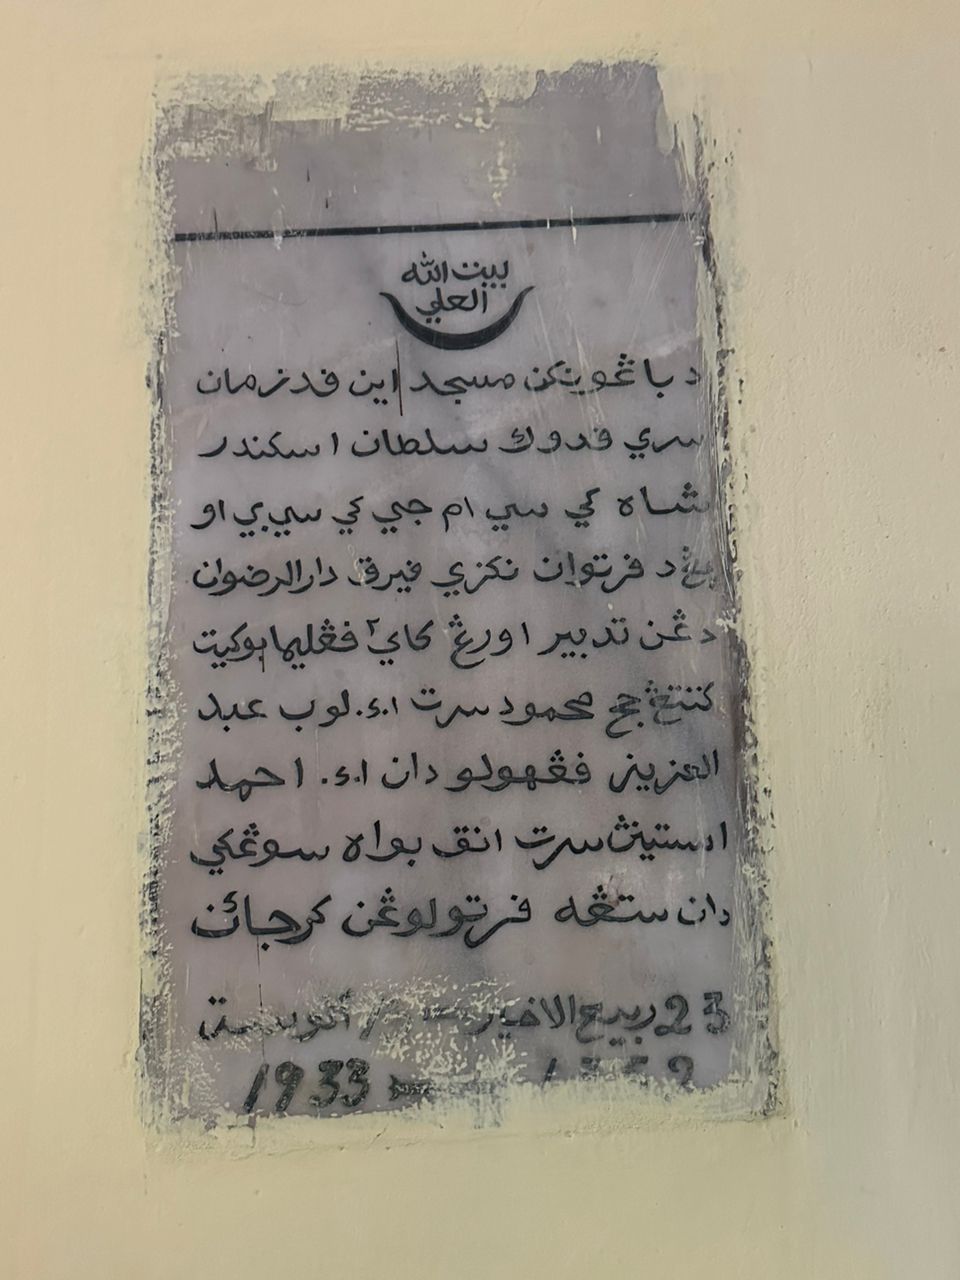 بيت الله
العلي
د باڠوينکن مسجد اين ڤدزمان
سري ڤدوك سلطان اسکندر
شاه کي سي ام جي کي سي بي او
يڠ د ڤرتوان نکري ڤيرق دارالرضوان
دڠن تدبير اورڠ کاي٢ ڤڠليما بوکيت
کنتڠ حج محمود سرت ا.ء. لوب عبد
العزيز ڤڠهولو دان ا.ء. احمد
استينڽ سرت انق بواه سوڠکي
دان ستڠه ڤرتولوڠن کرجائن
23 ربيع الاخير
1352 1933